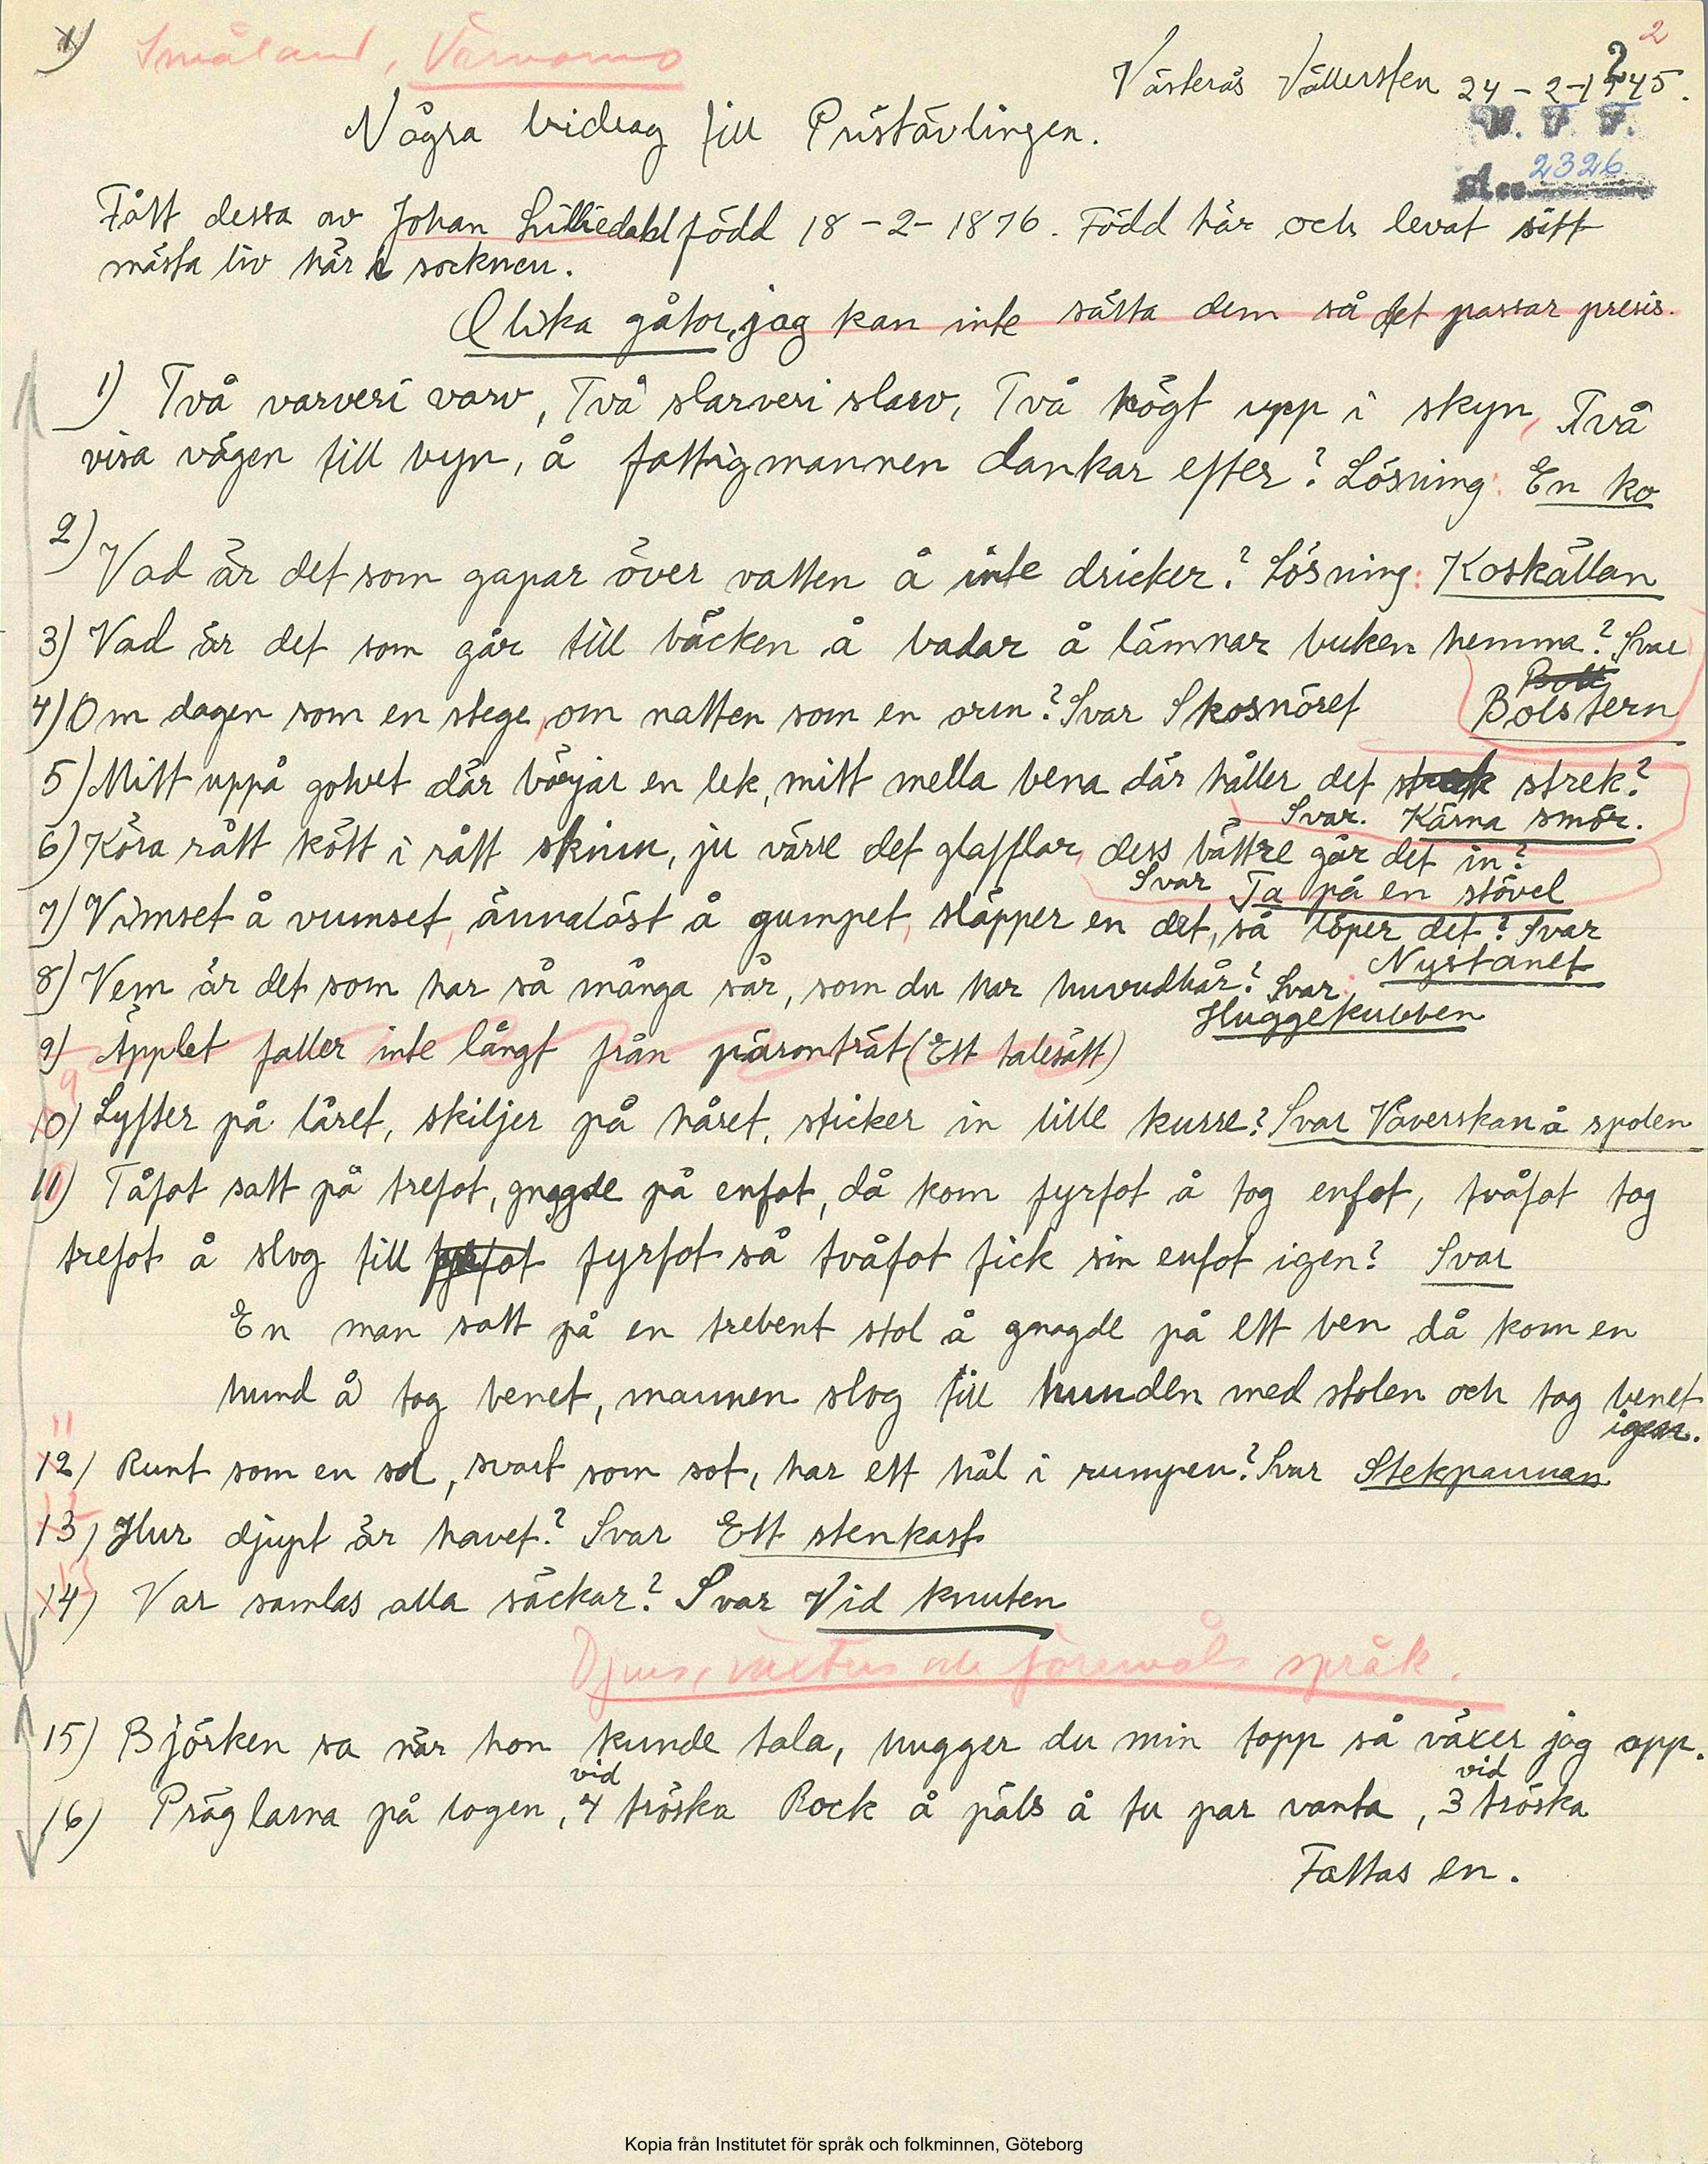 1) Småland, Värnamo
2
Västerås Vällersten 24-2-1945.
V. F. F.
2326
Några bidrag till Pristävlingen.
Fått dessa av Johan Lilliedahl född 18-2-1876. Född här och levat sitt
mästa liv här i socknen.
Olika gåtor, jag kan inte sätta dem så det passar presis.
1) Två varveri varv, Två slarveri slarv, Två högt upp i skyn, Två
visa vägen till byn, å fattigmannen dankar efter? Lösning: En ko
2) Vad är det som gapar över vatten å inte dricker? Lösning: Koskällan
3) Vad är det som går till bäcken å badar å lämnar buken hemma? Svar
Bolstern
4) Om dagen som en stege, om natten som en orm? Svar Skosnöret
5) Mitt uppå golvet där börjar en lek, mitt mella bena där håller det strek?
Svar. Kärna smör.
6) Köra rått kött i rått skinn, ju värre det glafflar, dess bättre går det in?
Svar Ta på en stövel
7) Vimset å vumset, ännalöst å gumpet, släpper en det, så löper det? Svar
Nystanet
8) Vem är det som har så många sår, som du har huvudhår? Svar:
Huggekubben
9) Äpplet faller inte långt från päronträt (Ett talesätt)
9
10) Lyfter på låret, skiljer på håret, sticker in lille kurre? Svar Väverskan å spolen
11) Tåfot satt på trefot, gnagde på enfot, då kom fyrfot å tog enfot, tvåfot tog
trefot å slog till fyrfot så tvåfot fick sin enfot igen? Svar
En man satt på en trebent stol å gnagde på ett ben då kom en
hund å tog benet, mannen slog till hunden med stolen och tog benet
igen.
11
12) Runt som en sol, svart som sot, har ett hål i rumpen? Svar Stekpannan
12
13) Hur djupt är havet? Svar Ett stenkast
13
14) Var samlas alla säckar? Svar Vid knuten
Djurs, växters och föremåls språk.
15) Björken sa när hon kunde tala, hugger du min topp så växer jag opp.
vid vid
16) Präglarna på logen, 4 tröska Rock å päls å tu par vanta, 3 tröska
Fattas en.
Kopia från Institutet för språk och folkminnen, Göteborg